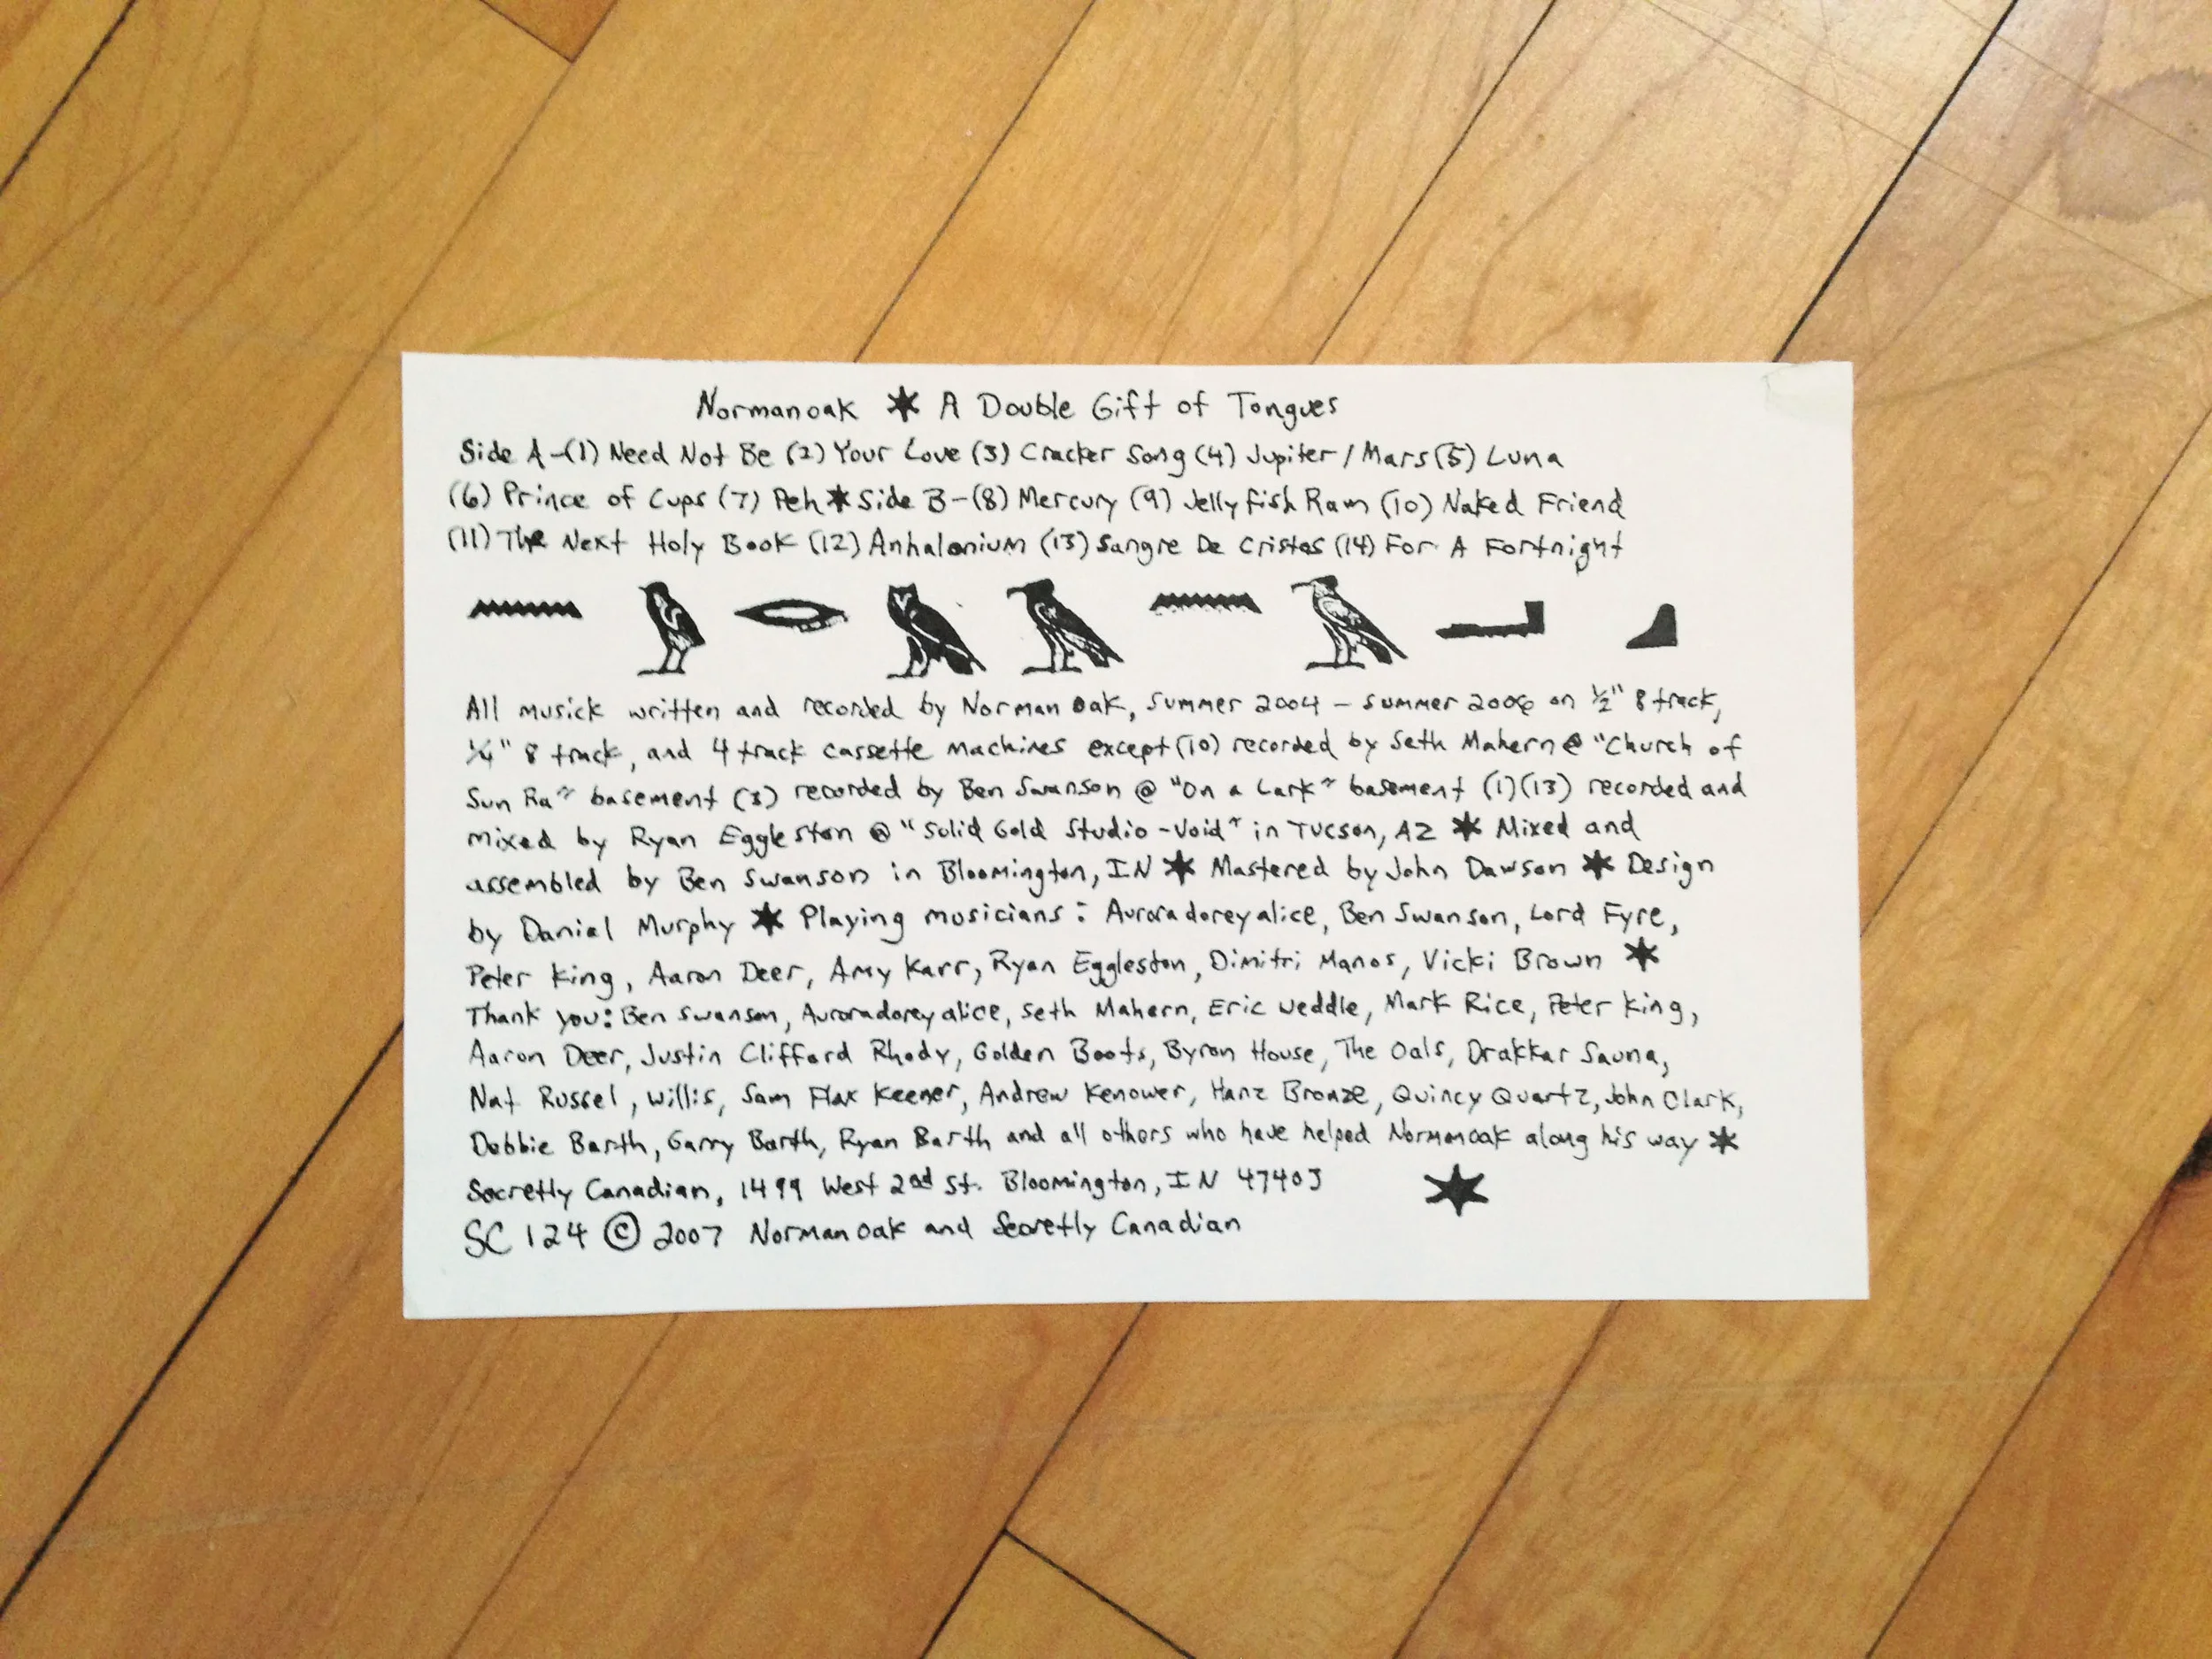 Normanoak ✶ A Double Gift of Tongues
Side A-(1) Need Not Be (2) Your Love (3) Cracker Song (4) Jupiter/Mars (5) Luna
(6) Prince of Cups (7) Peh ✶ Side B-(8) Mercury (9) Jellyfish Raw (10) Naked Friend
(11) The Next Holy Book (12) Anhalonium (13) Sangre De Cristos (14) For A Fortnight
All musick written and recorded by Normanoak, Summer 2004 - Summer 2006 on ½" 8 track,
¼" 8 track, and 4 track cassette machines except (10) recorded by Seth Mahern @ "Church of
Sun Ra" basement (3) recorded by Ben Swanson @ "On a Lark" basement (1)(13) recorded and
mixed by Ryan Eggleston @ "Solid Gold Studio-Void" in Tucson, AZ ✶ Mixed and
assembled by Ben Swanson in Bloomington, IN ✶ Mastered by John Dawson ✶ Design
by Daniel Murphy ✶ Playing musicians: Auroradoreyalice, Ben Swanson, Lord Fyre,
Peter King, Aaron Deer, Amy Karr, Ryan Eggleston, Dimitri Manos, Vicki Brown ✶
Thank you: Ben Swanson, Auroradoreyalice, Seth Mahern, Eric Weddle, Mark Rice, Peter King,
Aaron Deer, Justin Clifford Rhody, Golden Boots, Byron House, The Oals, Drakkar Sauna,
Nat Russel, Willis, Sam Flax Keener, Andrew Kenower, Hanz Bronze, Quincy Quartz, John Clark,
Debbie Barth, Garry Barth, Ryan Barth and all others who have helped Normanoak along his way ✶
Secretly Canadian, 1499 West 2nd St. Bloomington, IN 47403
SC 124 © 2007 Normanoak and Secretly Canadian